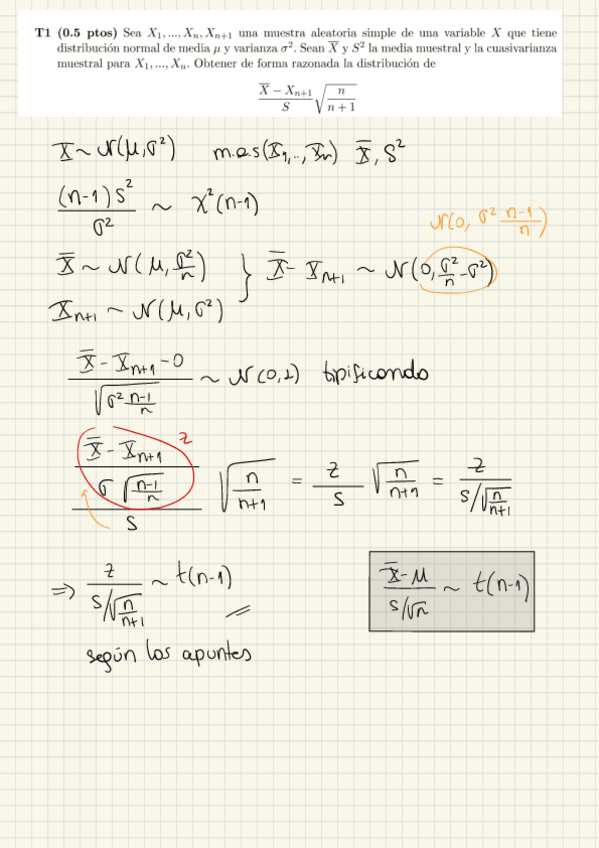 T1 (0.5 ptos) Sea X₁, ..., Xₙ, Xₙ₊₁ una muestra aleatoria simple de una variable X que tiene
distribución normal de media μ y varianza σ². Sean X̅ y S² la media muestral y la cuasivarianza
muestral para X₁, ..., Xₙ. Obtener de forma razonada la distribución de
(X̅ − Xₙ₊₁)/S √(n/(n + 1))
X ~ N(μ, σ²) m.a.s (X₁, .., Xₙ) X̅, S²
(n-1)S²/σ² ~ χ²(n-1)
N(0, σ² (n-1)/n)
X̅ ~ N(μ, σ²/n) } X̅ - Xₙ₊₁ ~ N(0, σ²/n - σ²)
Xₙ₊₁ ~ N(μ, σ²)
(X̅ - Xₙ₊₁ - 0)/√(σ² (n-1)/n) ~ N(0,1) tipificando
((X̅ - Xₙ₊₁)/(σ √((n-1)/n)))/S √(n/(n+1)) = z/S √(n/(n+1)) = z/(S/√(n/(n+1)))
z
⇒ z/(S/√(n/(n+1))) ~ t(n-1)
(X̅ - μ)/(S/√n) ~ t(n-1)
según los apuntes